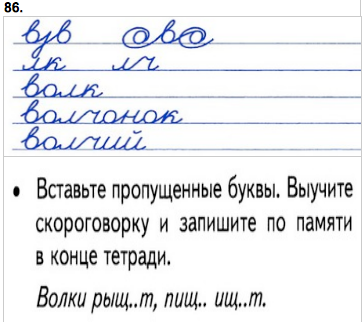 86.
взв ово
лк лч
волк
волчонок
волчий
• Вставьте пропущенные буквы. Выучите
скороговорку и запишите по памяти
в конце тетради.
Волки рыщ..т, пищ.. ищ..т.